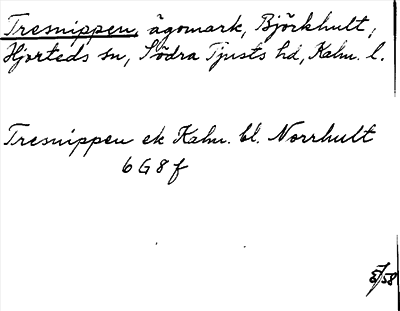 Tresnippen, ägomark, Björkhult,
Hjorteds sn, Södra Tjusts hd, Kalm. l.
Tresnippen ek Kalm. bl. Norrhult
6 G 8 f